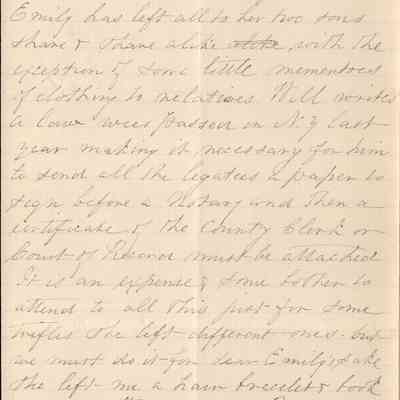 Emily has left all to her two sons
share & share alike alike, with the
exception of some little mementoes
of clothing to relatives. Will writes
a law was passed in N.Y last
year making it necessary for him
to send all the legatees a paper to
sign before a Notary and then a
certificate of the County Clerk or
Court of Record must be attached
It is an expense & some bother to
attend to all this just for some
trifles she left different ones. but
we must do it for dear Emily's sake
She left me a hair bracelet & book